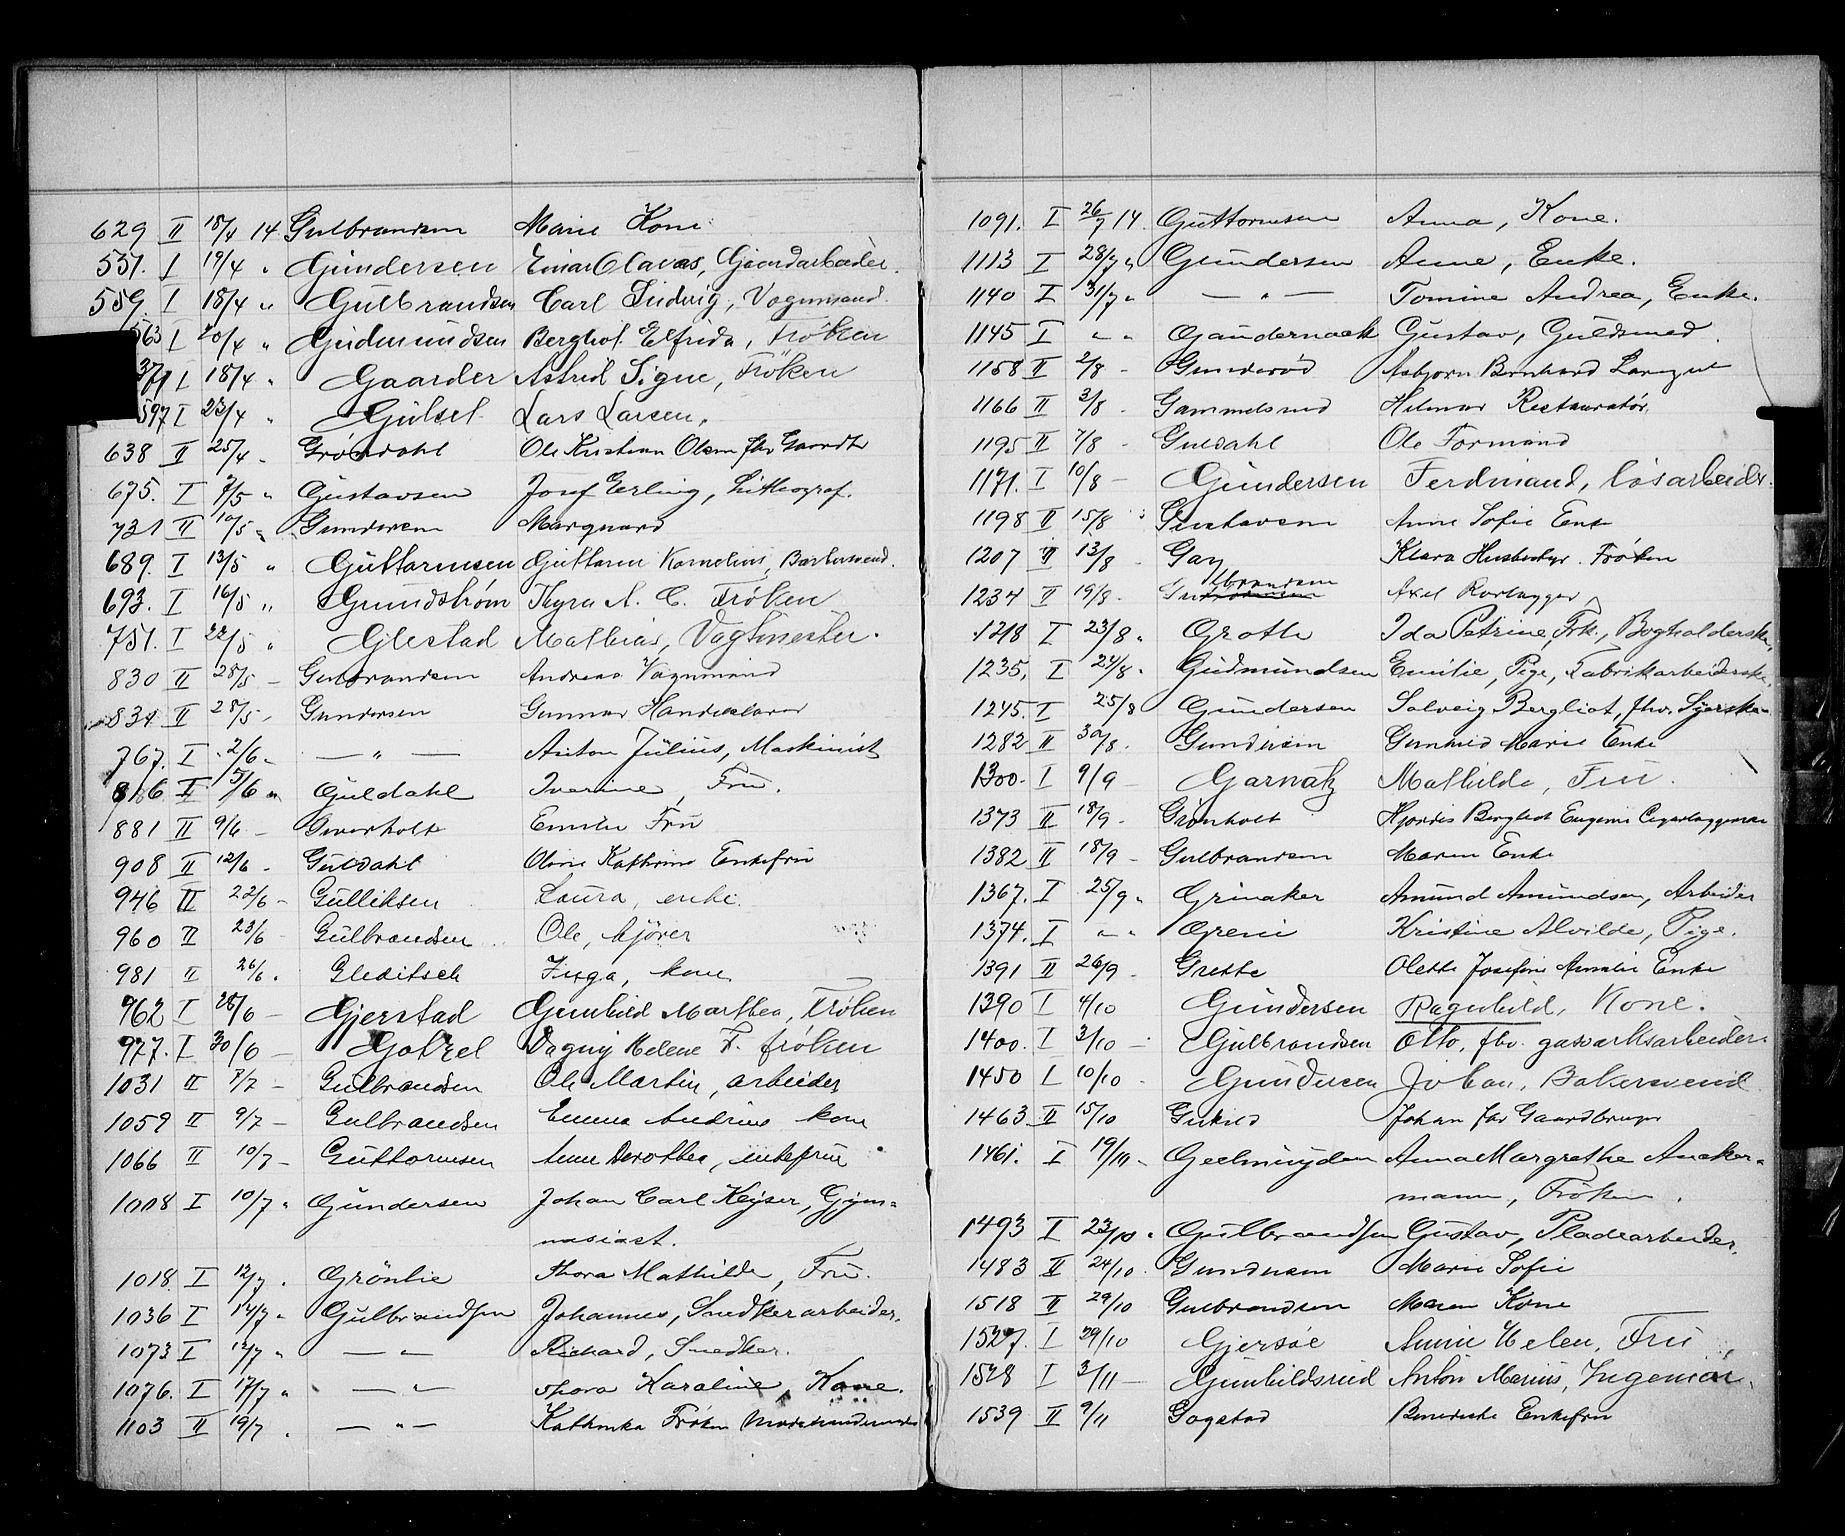 629 II 18/4 14 Gulbrandsen Marie Kone
551. I 19/4 " Gundersen Einar Olavas, Gaardarbeider.
559. I 18/4 " Gulbrandsen Carl Ludvig, Vognmand.
563 I 20/4 " Gudmundsen Berghof Elfrida, Frøken
371 I 18/4 " Gaarder Astrid Signe, Frøken
597 I 23/4 " Gulsel Lars Larsen,
638 II 25/4 - Gröndahl Ole Kristian Olsen fhv Gaardbr
675. I 7/5 " Gustavsen Josef Erling, Lithograf.
731 II 10/5 " Gundersen Marquard
689. I 13/5 " Guttormsen Guttorm Kornelius, Barbersvend.
693. I 16/5 " Grundstrøm Thyra A. C. Frøken
751. I 22/5 " Glestad Mathias, Vagtmester.
830 II 28/5 - Gulbrandsen Andreas Vognmand
834 II 28/5 - Gundersen Gunnar Handelslærer
767. I 2/6 - — " — Anton Julius, Maskinist
816 I 5/6 " Guldahl Iverine, Fru.
881 II 9/6 - Emilie Fru
908 II 12/6 - Guldahl Oline Kathrine Enkefru
946 II 22/6 - Gulliksen Laura, enke.
960 II 23/6 - Gulbrandsen Ole, kjører
981 II 26/6. Gleditsch Inga, kone
962 I 28/6 - Gjerstad Gunhild Marthea, Frøken
977. I 30/6 - Gotzel Dagny Helene F. frøken
1031 II 7/7 - Gulbrandsen Ole Martin, arbeider
1059 II 9/7 - Gulbrandsen Emma Andrine kone
1066 II 10/7 - Guttormsen Anne Dorothea, enkefrue
1008 I 10/7 " Gundersen Johan Carl Keyser, Gym-
nasiast.
1018. I 12/7 . Grönlie Thora Mathilde, Fru.
1036 I 14/7 " Gulbrandsen Johannes, Snedkerarbeider.
1073 I 12/7 " — " — Richard, Snedker.
1076. I 17/7 " — " — Thora Karoline, Kone.
1103 II 19/7 . — " — Kathinka Frøken
1091. I 26/7 14. Guttormsen Anna, Kone.
1113 I 28/7 " Gundersen Anne, Enke.
1140 I 31/7 " — " — Tomine Andrea, Enke.
1145 I " " Gaudernack Gustav, Guldsmed.
1158 II 2/8 - Gunderød Asbjørn Bernhard
1166 II 3/8 - Gammelsrud Hilmar Restauratør.
1195 II 7/8 - Guldahl Ole Formand
1171. I 10/8 - Gundersen Ferdinand, løsarbeider.
1198 II 15/8 Gustavsen Anne Sofie Enke
1207 II 13/8 - Gay Klara Husbestyr. Frøken
1234 II 19/8 - Gulbrandsen Axel Rørlægger
1218 I 23/8 " Grotle Ida Petrine, Frk., Bogholderske.
1235. I 24/8 " Gudmundsen Emilie, Pige, Fabrikarbeiderske.
1245. I 25/8 Gundersen Solveig Bergliot, fhv. Syerske
1282 II 30/8. Gundersen Gunhild Marie Enke
1300. I 9/9 - Garnatz Mathilde, Fru.
1373 II 18/9 - Grönholt Hjørdis Bergliot Eugenie
1382 II 18/9 - Gulbrandsen Maren Enke
1367. I 25/9 " Grinaker Amund Amundsen, Arbeider
1374. I " " Greni Kristine Alvilde, Pige.
1391 II 26/9 - Grette Olette Josefine Amalie Enke
1390 I 4/10 Gundersen Ragnhild, Kone.
1400. I 3/10 - Gulbrandsen Otto, fhv. gasværksarbeider.
1450 I 10/10 - Gundersen Johan, Bakersvend
1463 II 15/10 Johan fhv Gaardbruger
1461. I 19/10 - Geelmuyden Anna Margrethe Ancker-
mann, Frøken.
1493 I 23/10 " Gulbrandsen Gustav, Pladearbeider.
1483 II 24/10. Gundersen Marie Sofie
1518 II 29/10 Gulbrandsen Maren Kone
1527. I 29/10 Gjersøe Annie Helen, Fru
1528 I 3/11 - Gunhildsrud Anton Marius, Ingeniør.
1539 II 9/11 Gogstad Benedicte Enkefru